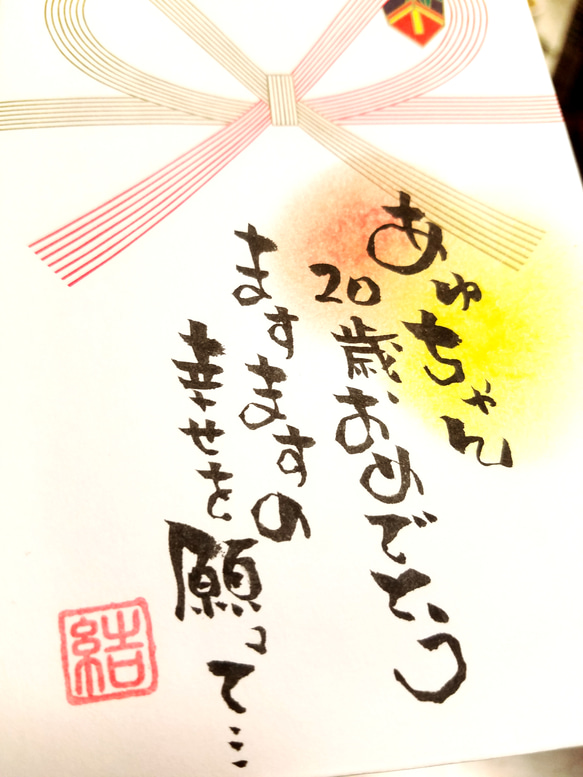 あゆちゃん
20歳、おめでとう
ますますの
幸せを願って…
結